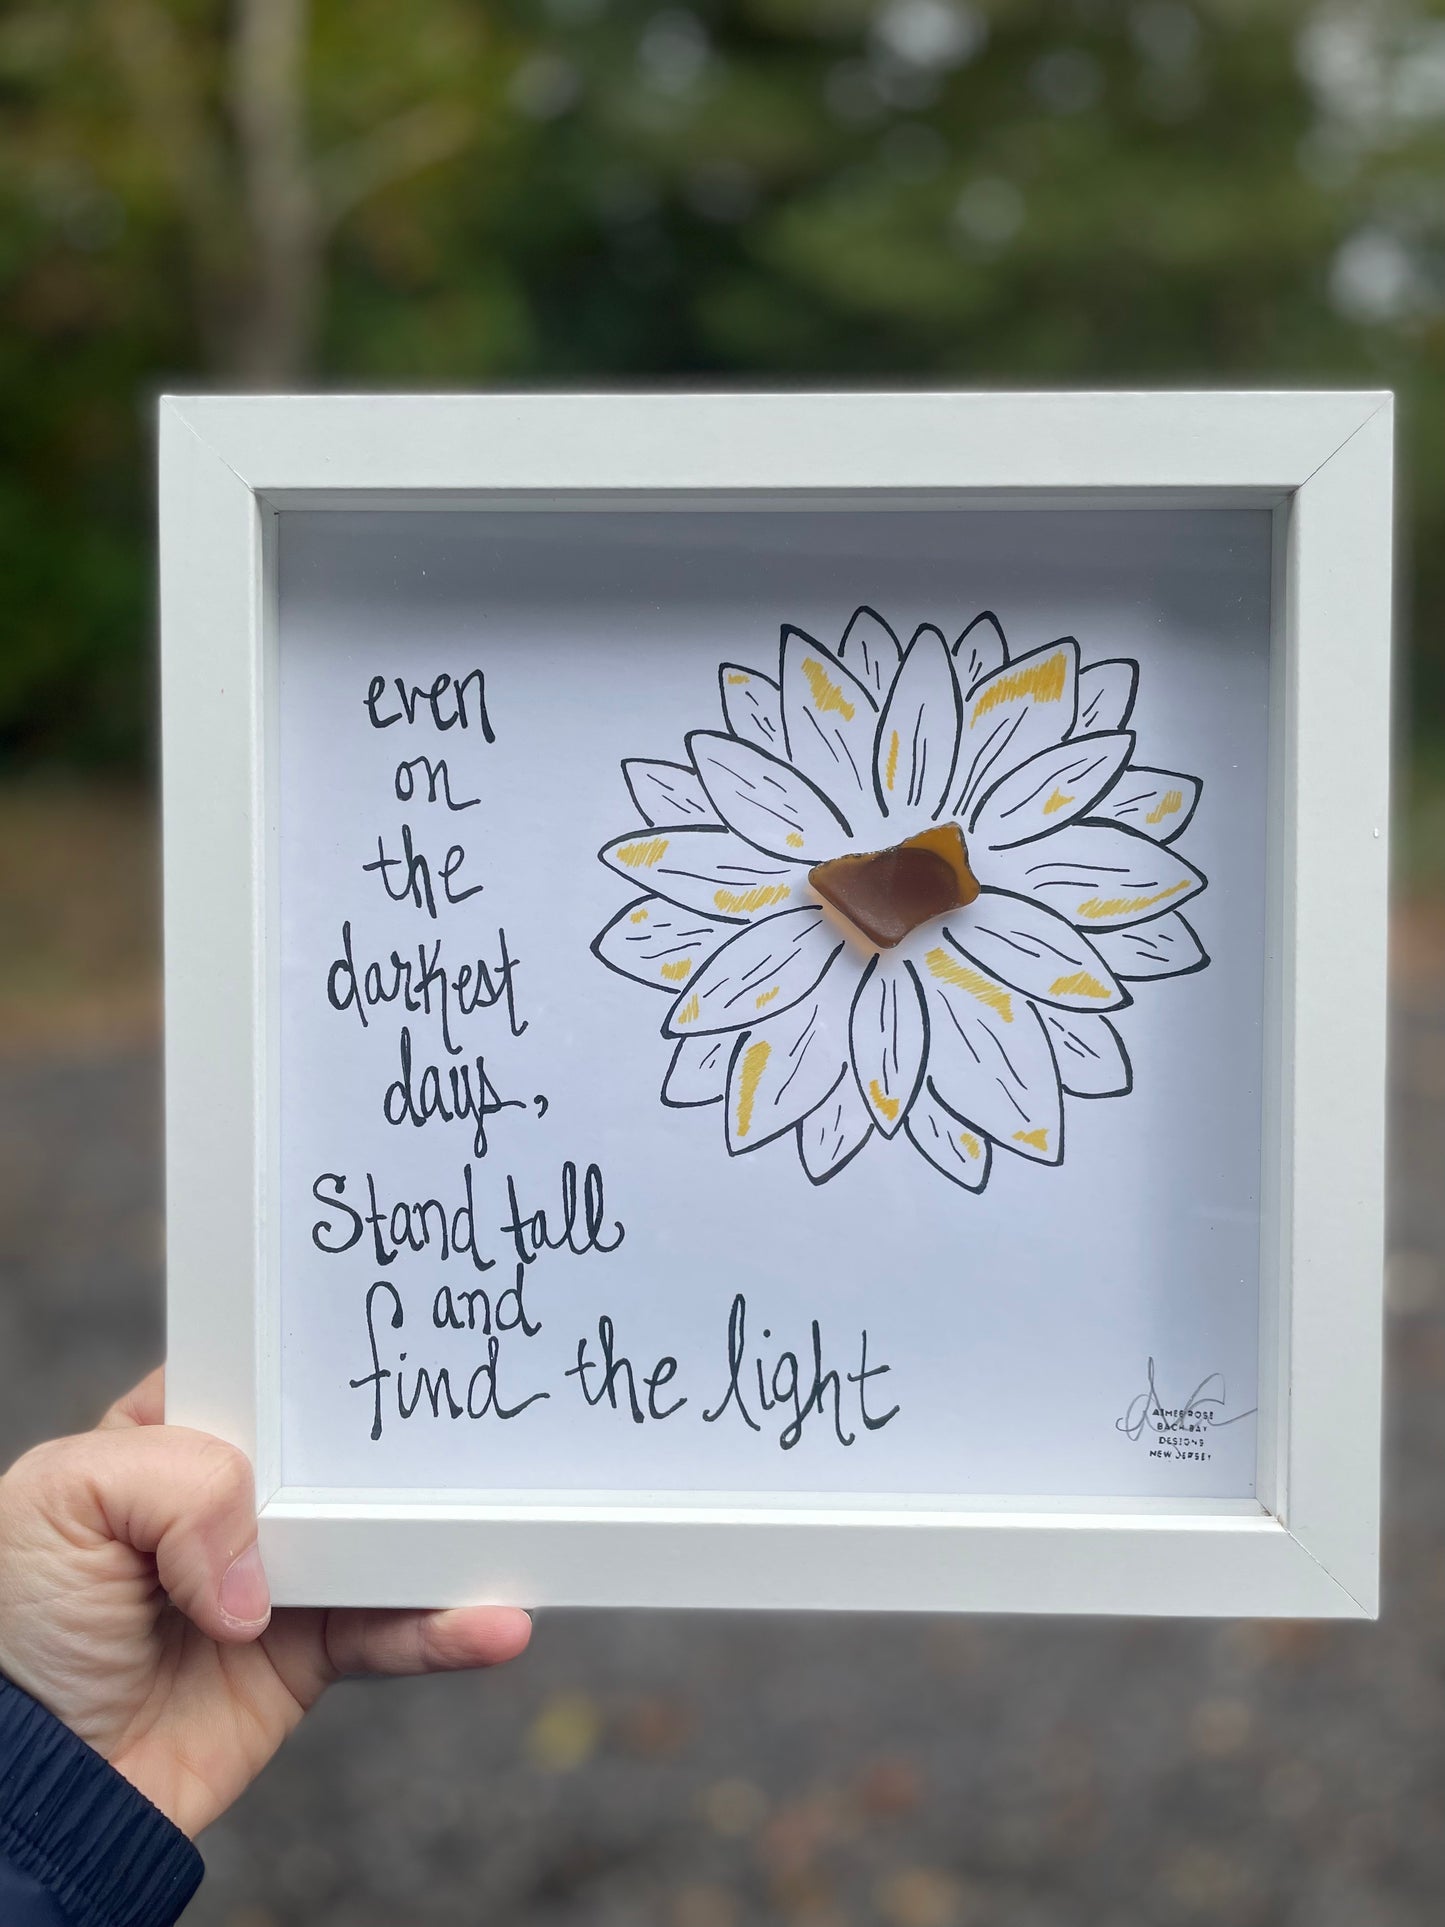 even
on
the
darkest
days,
Stand tall
and
find the light
AIMEE ROSE
BACK BAY
DESIGNS
NEW JERSEY